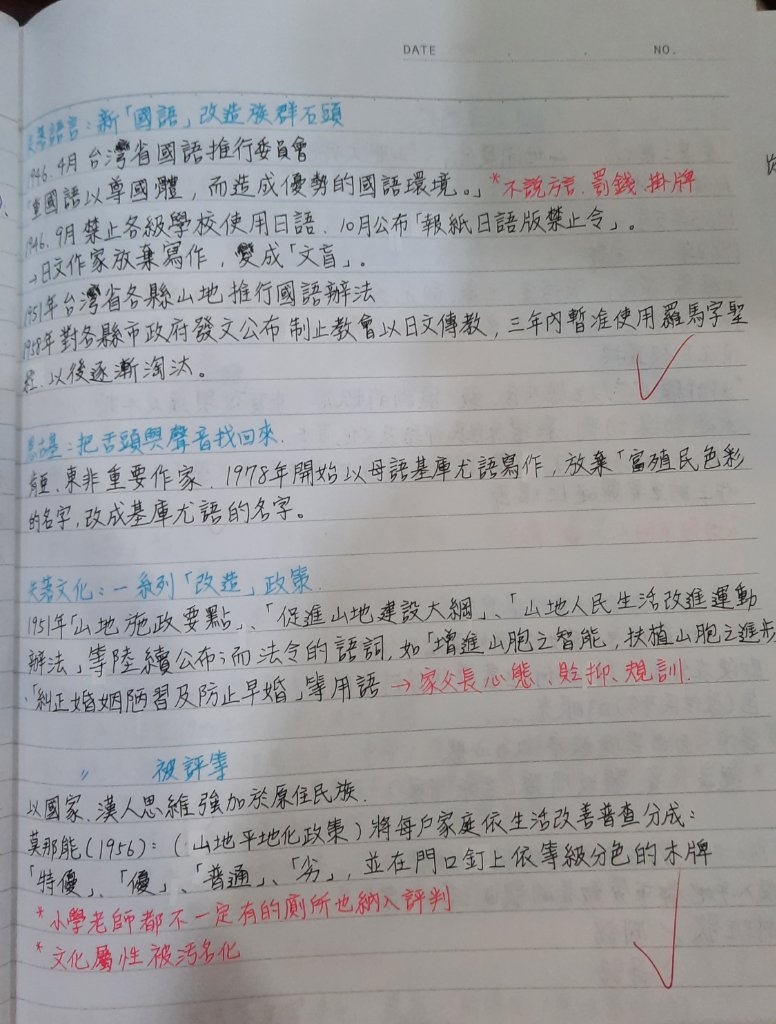 DATE . . NO.
失落語言：新「國語」改造族群石頭
1946.4月 台灣省國語推行委員會
「重國語以尊國體，而造成優勢的國語環境。」*不說方言、罰錢、掛牌
1946.9月 禁止各級學校使用日語、10月公布「報紙日語版禁止令」。
→日文作家放棄寫作，變成「文盲」。
1951年台灣省各縣山地推行國語辦法
1958年對各縣市政府發文公布制止教會以日文傳教，三年內暫准使用羅馬字聖
經、以後逐漸淘汰。
恩古基：把舌頭與聲音找回來.
肯亞、東非重要作家、1978年開始以母語基庫尤語寫作，放棄「富殖民色彩
的名字，改成基庫尤語的名字。
失落文化：一系列「改造」政策.
1951年「山地施政要點」、「促進山地建設大綱」、「山地人民生活改進運動
辦法」等陸續公布；而法令的語詞，如「增進山胞之智能，扶植山胞之進步
、「糾正婚姻陋習及防止早婚」等用語→家父長心態、貶抑、規訓.
〃 被評等
以國家、漢人思維強加於原住民族.
莫那能(1956)：(山地平地化政策)將每戶家庭依生活改善普查分成：
「特優」、「優」、「普通」、「劣」，並在門口釘上依等級分色的木牌
*小學老師都不一定有的廁所也納入評判
*文化屬性被污名化